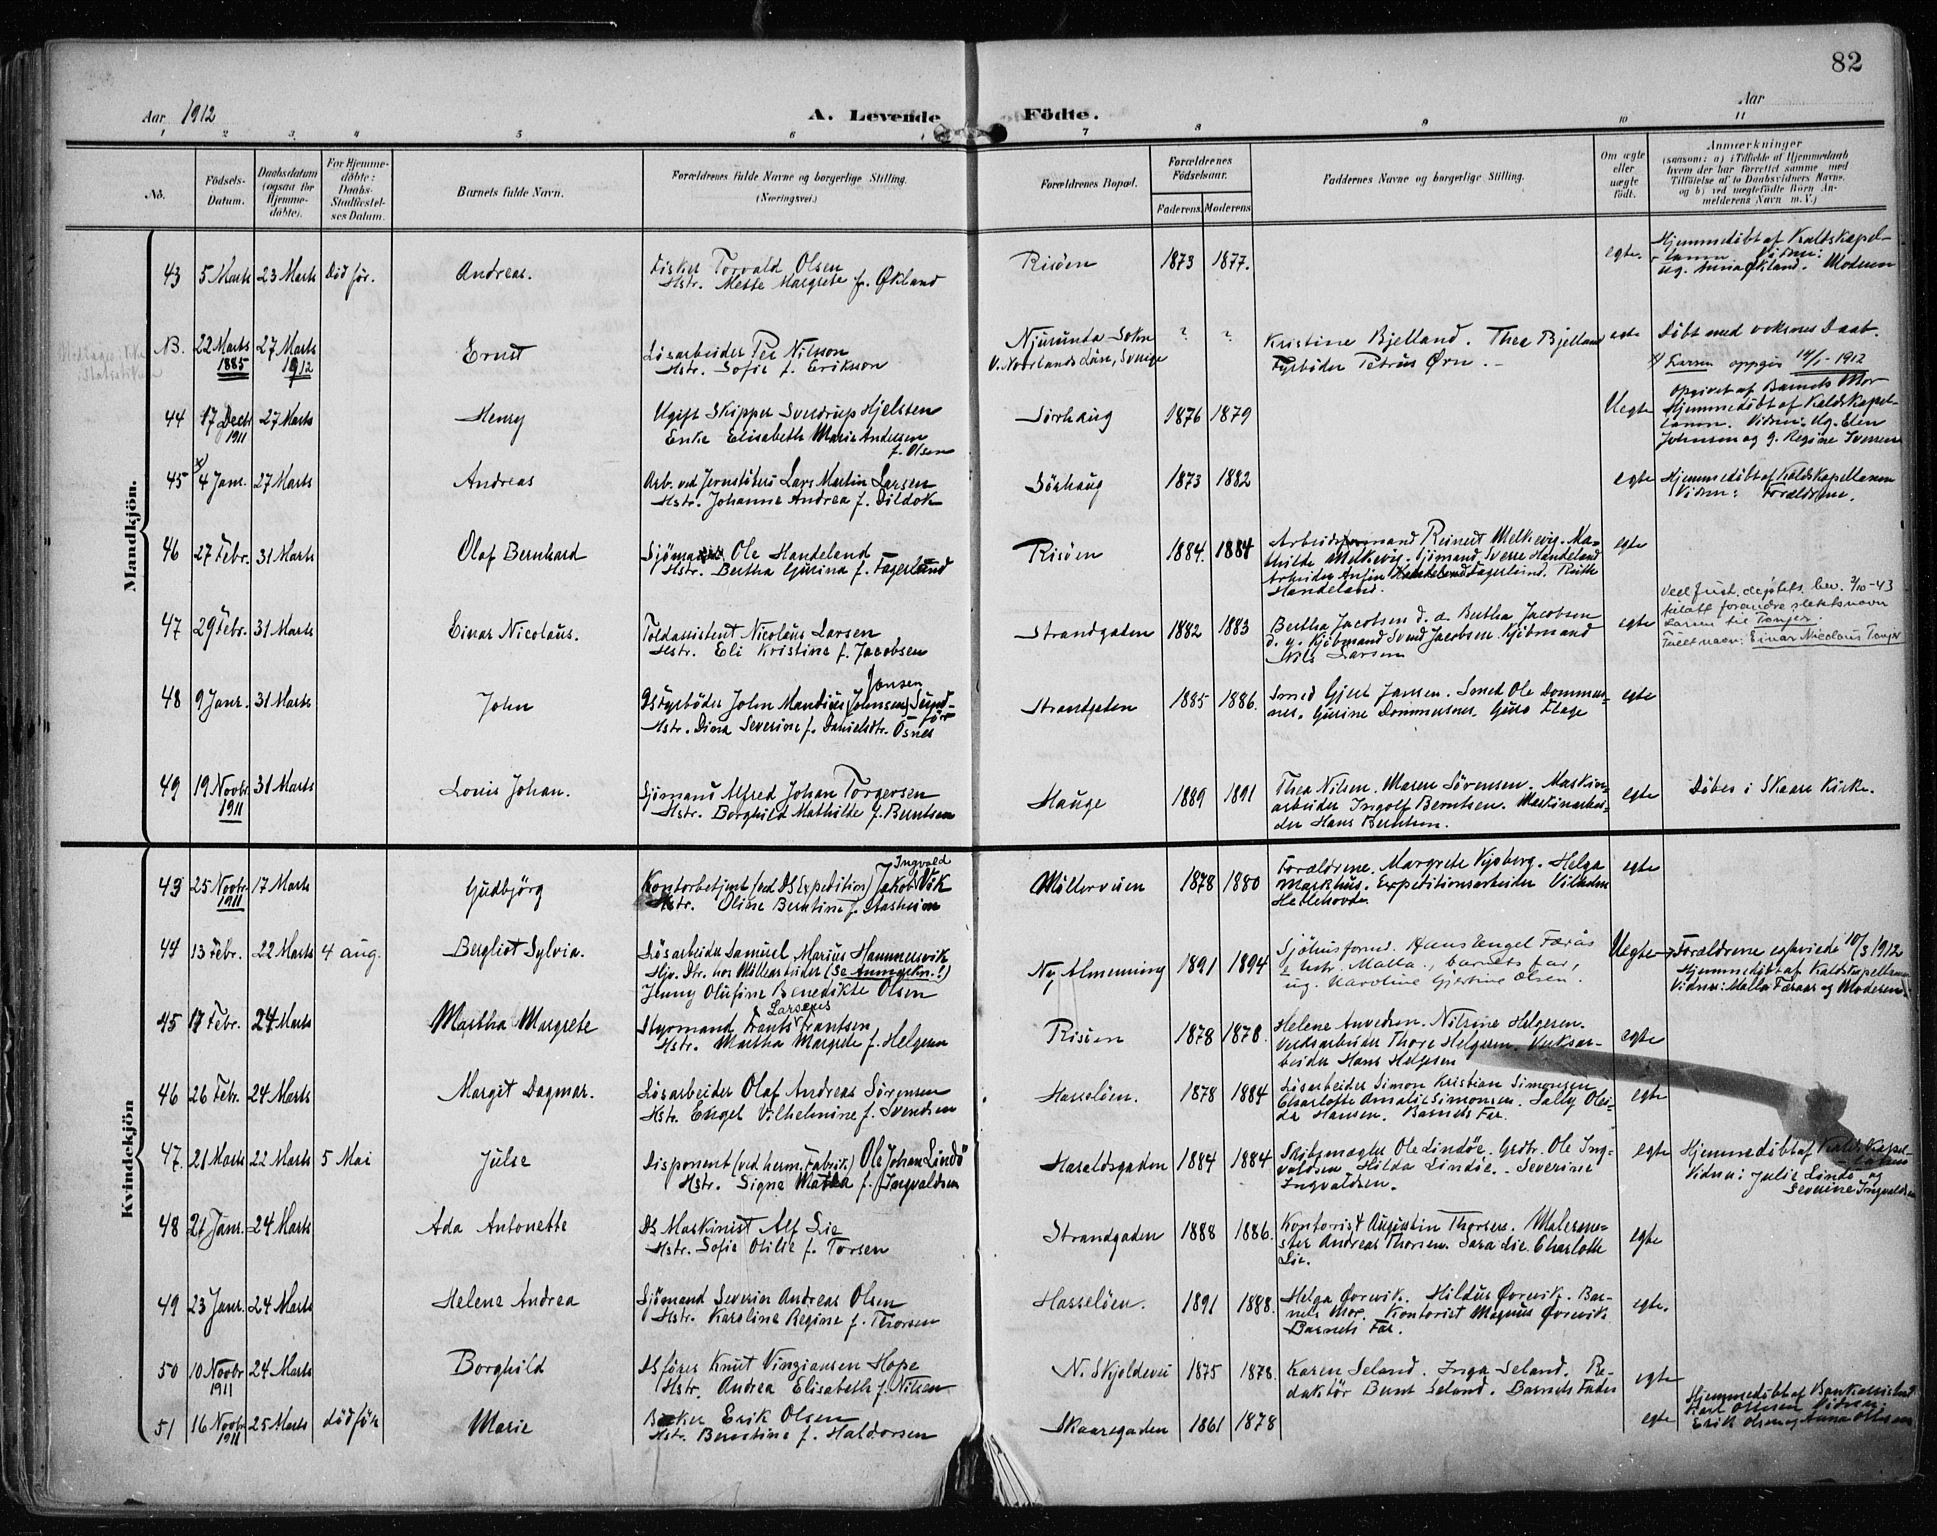 82
Aar 1912
A. Levende Födte.
Aar
1 2 3 4 5 6 7 8 9 10 11
No.
Födsels-Datum.
Daabsdatum (ogsaa for Hjemmedöbte).
For Hjemmedöbte: Daabs-Stadfæstelses Datum.
Barnets fulde Navn.
Forældrenes fulde Navne og borgerlige Stilling. (Næringsvei.)
Forældrenes Bopæl.
Forældrenes Födselsaar.
Faderens. Moderens
Faddernes Navne og borgerlige Stilling.
Om ægte eller uægte födt.
Anmærkninger
(saasom: a) i Tilfælde af Hjemmedaab
hvem der har forrettet samme med
Tilföielse af to Daabsvidners Navne.
og b) ved uægtefödte Börn An-
melderens Navn m. V.)
Mandkjön.
43 5 Marts 23 Marts Död för. Andreas.
Fisker Torvald Olsen
Hstr. Mette Margrete f. Økland
Risöen 1873 1877. egte.
Hjemmedöbt af Kaldskapel-
lanen. Vidner:
ug. Anna Økland. Moderen
NB. 22 Marts 1885 27 Marts 1912 Ernst
Lösarbeider Per Nilsson
Hstr. Sofie f. Erikson
Njurunda Sokn
V. Norrlands Län, Sverige
? ?
Kristine Bjelland. Thea Bjelland
Fyrböder Petrus Ørn.
egte
Döbt med voksnes Daab.
x) Larsen oppgir 14/1-1912
44 17 Decbr 1911 27 Marts Henry
Ugift Skipper Sverdrup Hjelsten
Enke Elisabeth Marie Andersen
f. Olsen
Sörhaug 1876 1879 Uegte
Opgivet af Barnets Mor
Hjemmedöbt af Kaldskapel-
lanen. Vidner: Ug. Elen
Johnsen og g. Regine Iversen
45 x) 4 Janr. 27 Marts Andreas
Arb. ved Jernstöberi Lars Martin Larsen
Hstr. Johanne Andrea f. Dildok
Sörhaug 1873 1882 egte
Hjemmedöbt af Kaldskapellanen
Vidner: Forældrene.
46 27 Febr. 31 Marts Olaf Bernhard
Sjömand Ole Handeland
Hstr. Bertha Gurina f. Fagerlund
Risöen 1884. 1884
Arbeidsformand Reinert Melkevig. Ma-
thilde Melkevig. Sjömand Sverre Handeland
Arbeider Fagerlund. Ruth
Handeland.
egte
47 29 Febr. 31 Marts Einar Nicolaus.
Toldassistent Nicolaus Larsen
Hstr. Eli Kristine f. Jacobsen
Strandgaten 1882 1883
Bertha Jacobsen d. æ. Bertha Jacobsen
d. y. Kjöbmand Svend Jacobsen. Kjöbmand
Nils Larsen
egte
Ved Just. deptets bev. 2/10-43
tillatt forandre slektsnavn
Larsen til Tonjer.
Fullt navn: Einar Nicolaus Tonjer
48 9 Janr. 31 Marts John
Jansen
Dsfyrböder John Mandius Johnsen
Hstr. Dina Severine f. Danielsdtr. Osnes
Strandgaten 1885 1886.
Smed Gjert Jansen. Smed Ole Dommers-
nes. Gurine Dommersnes. Guro Flage
egte
49 19 Novbr. 1911 31 Marts Louis Johan.
Sjömand Alfred Johan Torgersen
Hstr. Borghild Mathilde f. Berntsen
Hauge 1889 1891
Thea Nilsen. Maren Sörensen. Maskin-
arbeider Ingolf Berntsen. Maskinarbei-
der Hans Berntsen.
egte
Döbes i Skaare Kirke.
Kvindekjön
43 25 Novbr. 1911 17 Marts Gudbjörg
Ingvald
Kontorbetjent (ved DS Expedition) Jakob Vik
Hstr. Oline Berntine f. Aasheim
Möllerveien 1878 1880
Forældrene. Margrete Vysberg. Helga
Markhus. Expeditionsarbeider Vilhelm
egte
44 13 Febr. 22 Marts 4 aug. Bergliot Sylvia.
Lösarbeider Samuel Marius Hammersvik
Hjv. Dtr. hos Möllearbeider (Se Anmerkn.!)
Jenny Olufine Benedikte Olsen
Ny Almenning 1891 1894
Sjöhusformd. Hans Engel Færås
& hstr. Malla., barnets far,
ug. Karoline Gjertine Olsen.
Uegte
Forældrene egteviede 10/3 1912
Hjemmedöbt af Kaldskapellanen
Vidner: Malla Færaas og Moderen.
45 17 Febr. 24 Marts Martha Margrete
Larsenes
Styrmand Frants Frantsen
Hstr. Martha Margrete f. Helgesen
Risöen 1878 1878.
Helene Anvedsen. Nilsine Helgesen.
Verksarbeider Thore Helgesen. Verksar-
beider Hans Helgesen
egte
46 26 Febr. 24 Marts Margit Dagmar.
Lösarbeider Olaf Andreas Sörensen
Hstr. Engel Vilhelmine f. Svendsen
Hasselöen. 1878 1884
Lösarbeider Simon Kristian Simonsen
Charlotte Amalie Simonsen. Sally Olei-
da Hansen. Barnets Far.
egte
47. 21 Marts 22 Marts 5 Mai Julie
Disponent (ved herm. Fabrik.) Ole Johan Lindö
Hstr. Signe Matha f. Ingvaldsen
Haraldsgaden 1884 1884
Skibsmægler Ole Lindöe. Grdbr. Ole Ing-
valdsen. Hilda Lindöe. Severine
Ingvaldsen.
egte
Hjemmedöbt af Kaldskapel-
lanen
Vidner: Julie Lindö og
Severine Ingvaldsen
48 21 Janr. 24 Marts Ada Antonette
Ds Maskinist Alf Lie
Hstr. Sofie Otilie f. Torsen
Strandgaden 1888 1886.
Kontorist Augustin Thorsen. Malerme-
ster Andreas Thorsen. Sara Lie. Charlotte
Lie.
egte
49 23 Janr. 24 Marts Helene Andrea
Sjömand Severin Andreas Olsen
Hstr. Karoline Regine f. Thorsen
Hasselöen. 1891 1888.
Helga Örevik. Hildur Örevik. Bar-
nets Mor. Kontorist Magnus Örevik
Barnets Far.
egte.
50 10 Novbr 1911 24 Marts Borghild
Ds förer Knut Vingiansen Hope
Hstr. Andrea Elisabeth f. Nilsen
N. Skjoldevei 1875 1878.
Karen Seland. Inga Seland. Re-
daktör Bernt Seland. Barnets Fader
egte
51 16 Novbr. 1911 25 Marts död för Marie
Baker Erik Olsen
Hstr. Berntine f. Haldorsen
Skaaregaden 1861 1878 egte
Hjemmedöbt af Bankassistent
Karl Ottesen Vidner:
Erik Olsen og Anna Olsen